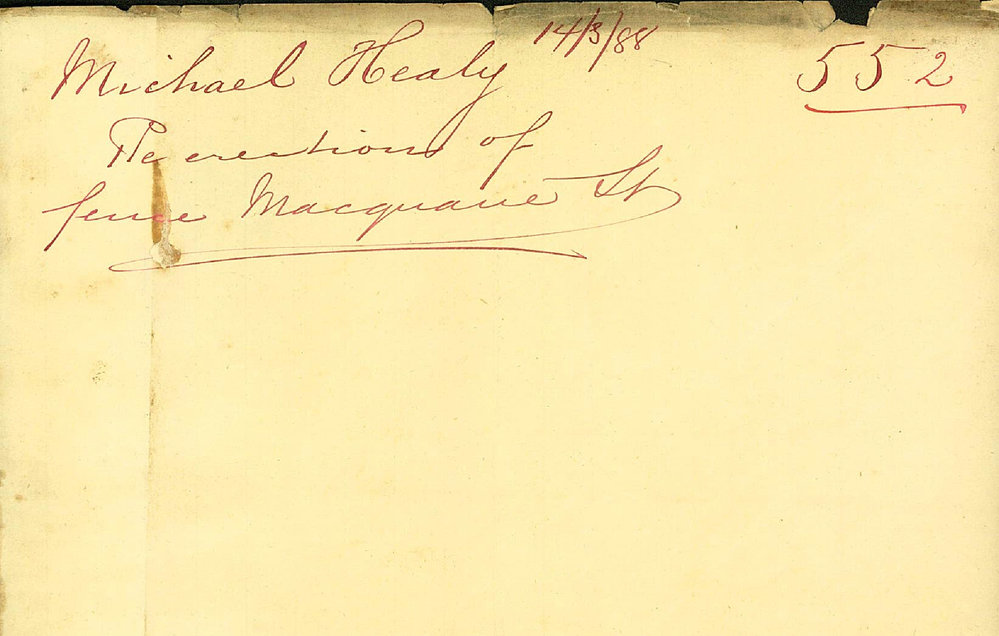 Michael Healy 14/3/88 552
Re erection of
fence Macquarie St